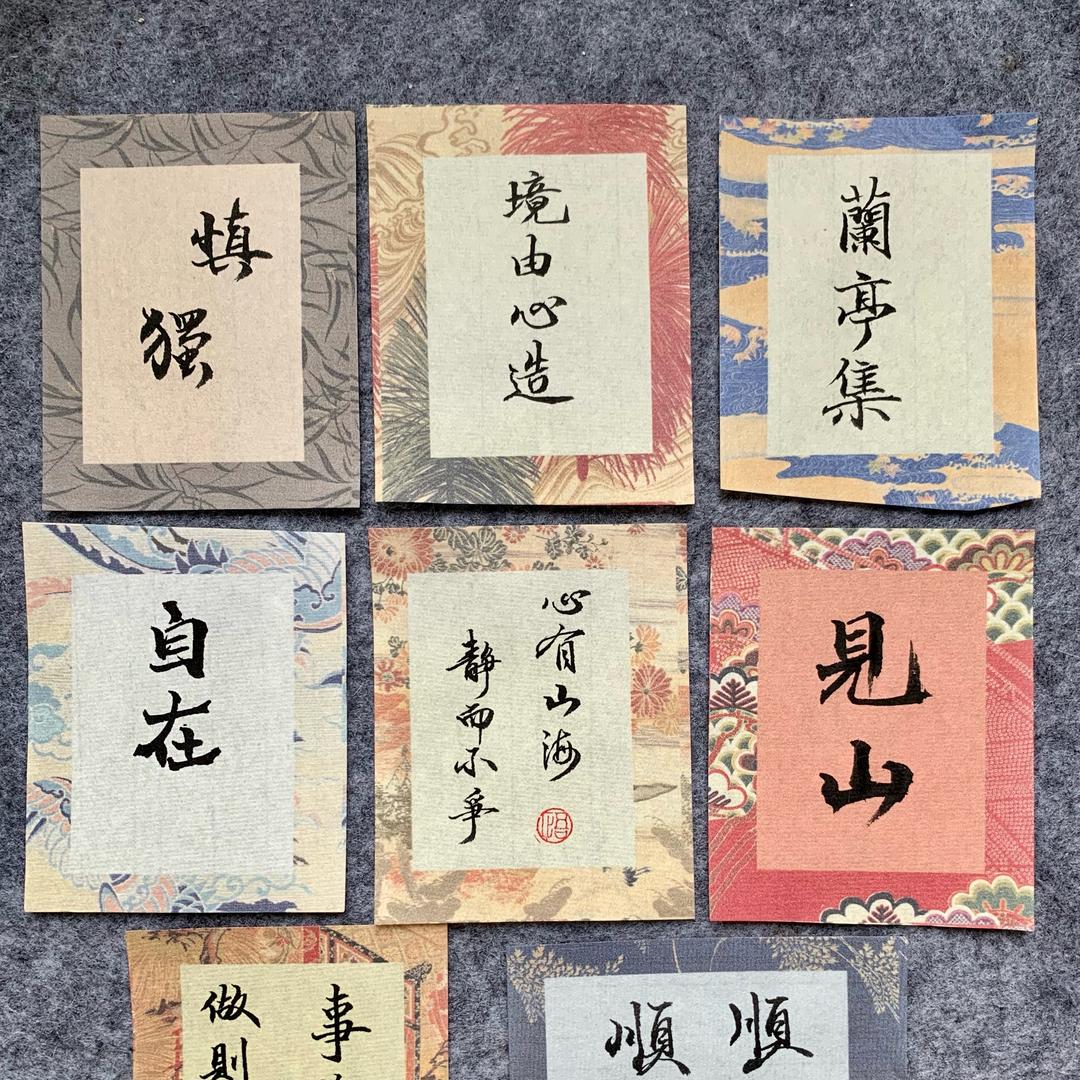 慎獨
境由心造
蘭亭集
自在
心有山海
靜而不爭
見山
事
做則
順
順